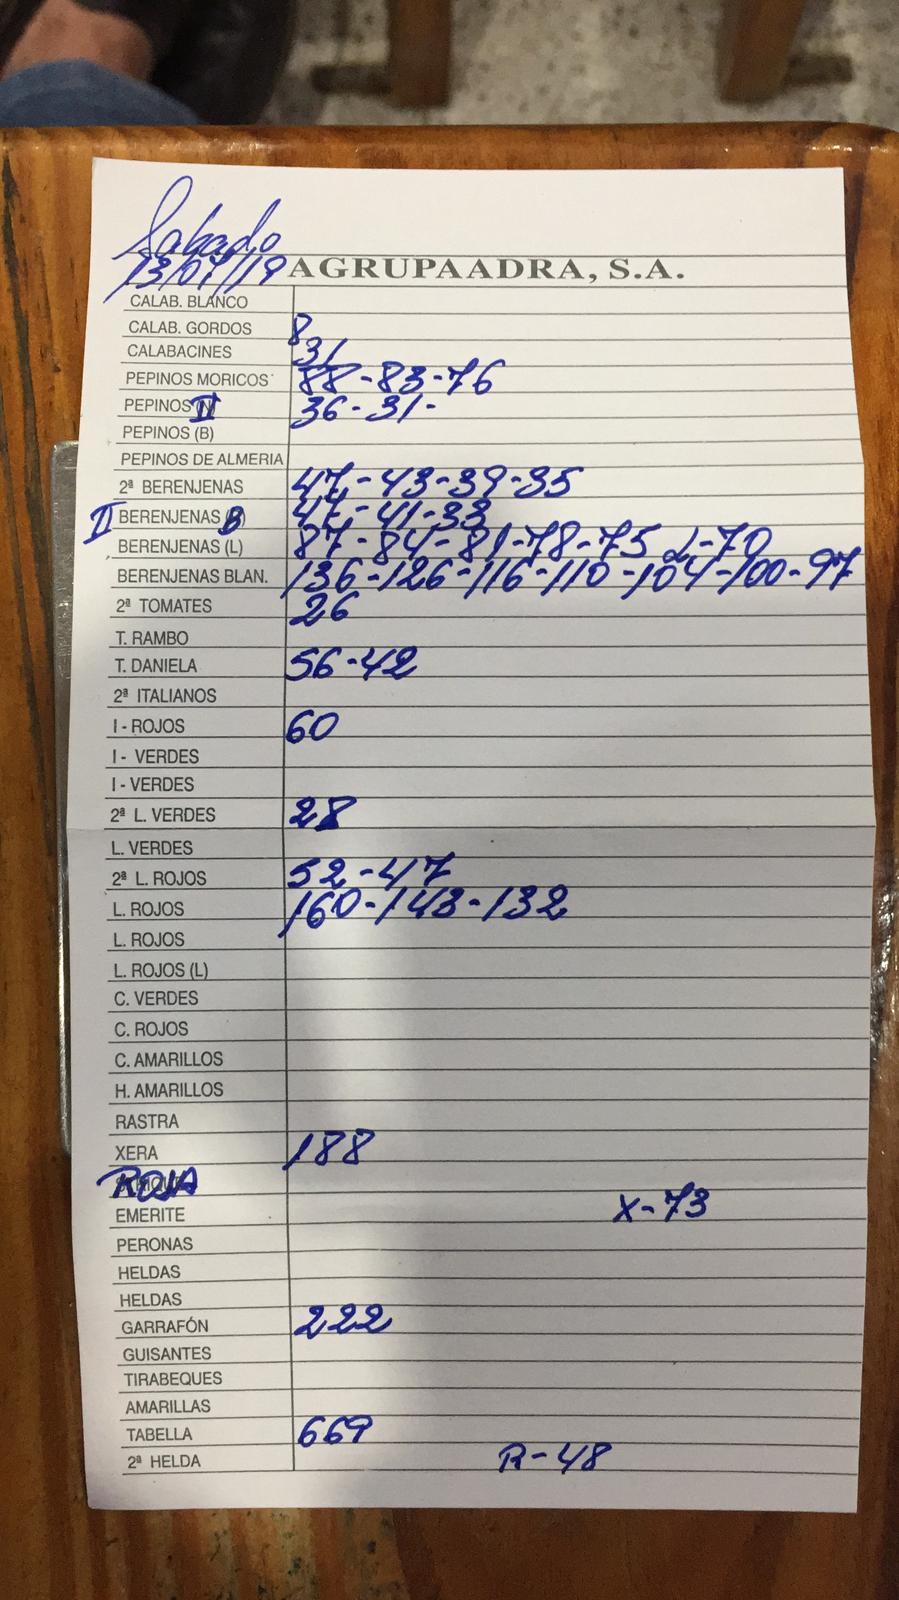 Sabado
13/07/19 AGRUPAADRA, S.A.
CALAB. BLANCO
CALAB. GORDOS 8
CALABACINES 31
PEPINOS MORICOS 88-83-76
PEPINOS II 36-31-
PEPINOS (B)
PEPINOS DE ALMERIA
2ª BERENJENAS 47-43-39-35
II BERENJENAS B 47-41-33
BERENJENAS (L) 87-84-81-78-75 L-70
BERENJENAS BLAN. 136-126-116-110-104-100-97
2ª TOMATES 26
T. RAMBO
T. DANIELA 56-42
2ª ITALIANOS
I - ROJOS 60
I - VERDES
I - VERDES
2ª L. VERDES 28
L. VERDES
2ª L. ROJOS 52-47
L. ROJOS 160-143-132
L. ROJOS
L. ROJOS (L)
C. VERDES
C. ROJOS
C. AMARILLOS
H. AMARILLOS
RASTRA
XERA 188
ROJA
EMERITE X-73
PERONAS
HELDAS
HELDAS
GARRAFÓN 222
GUISANTES
TIRABEQUES
AMARILLAS
TABELLA 669
2ª HELDA R-48